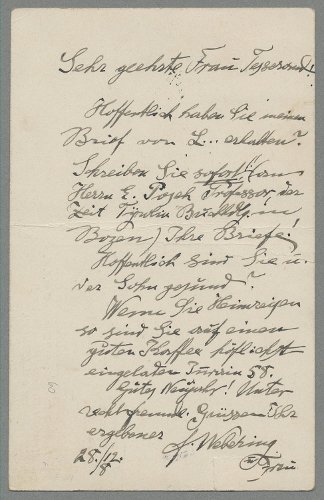 Sehr geehrte Frau
Hoffentlich haben Sie meinen
Brief von L... erhalten?
Schreiben Sie sofort (an
Herrn E. Professor der
Zeit in
Bozen) Ihre Briefe!
Hoffentlich sind Sie u.
der Sohn gesund?
Wenn Sie
so sind Sie auf einen
guten Kaffee höflichst
eingeladen 58.
Gutes Neujahr! Unter
recht Grüssen Ihr
ergebener
28./12.
8
u. Frau